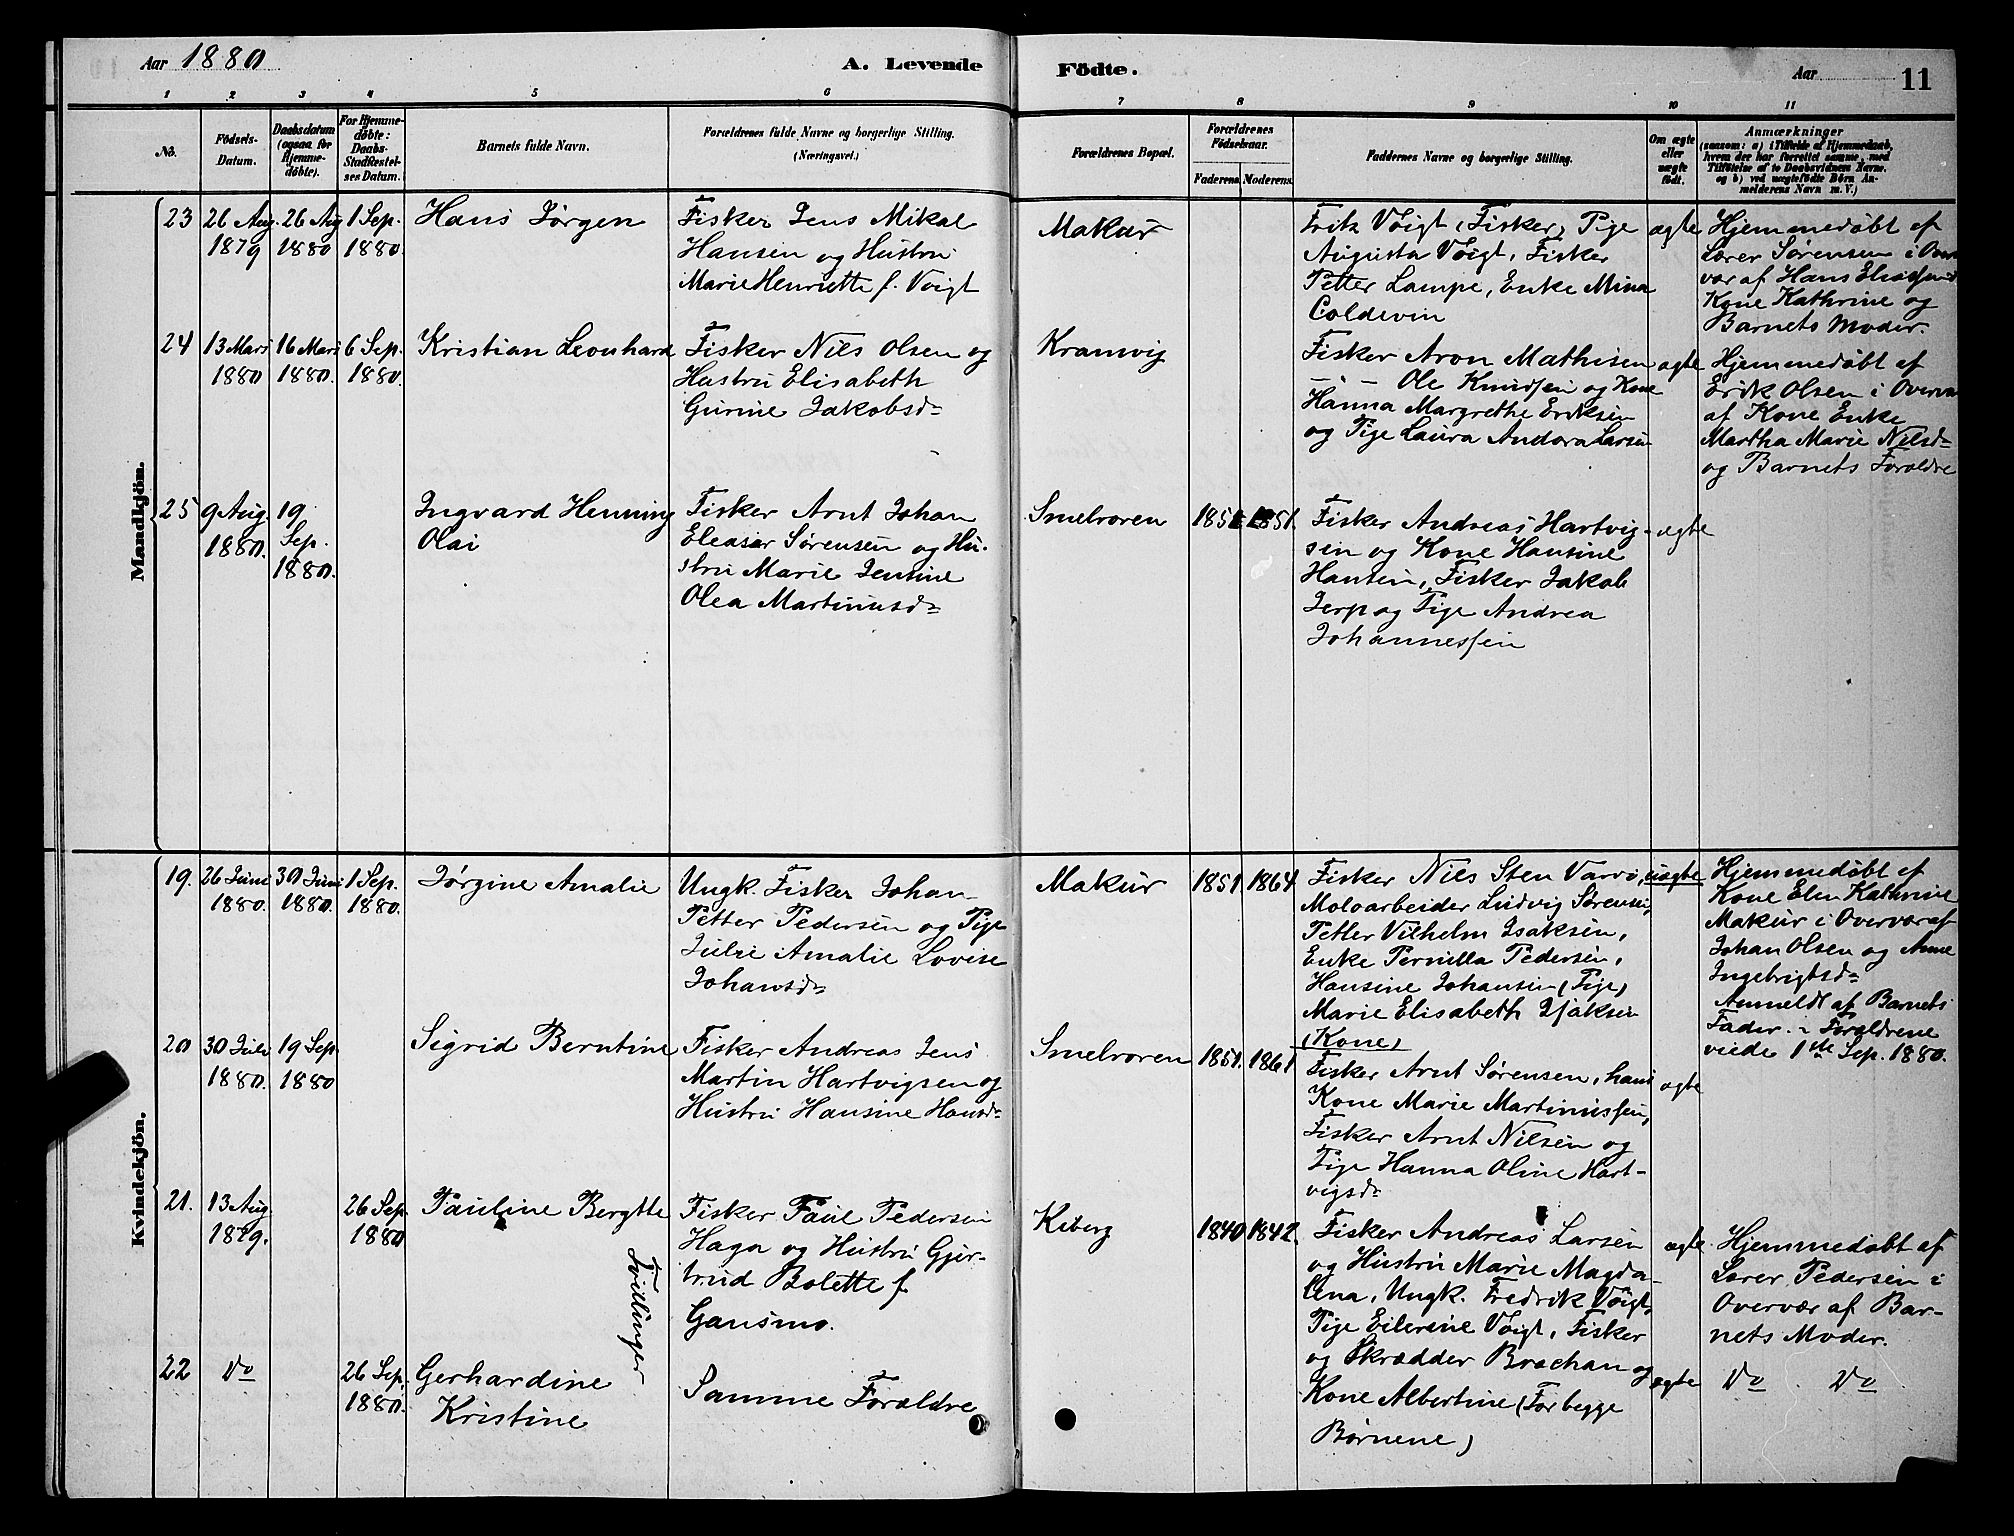 Aar 1880
A. Levende Födte.
Aar
11
1 2 3 4 5 6 7 8 9 10 11
No.
Födsels-
Datum.
Daabsdatum
(ogsaa for
Hjemme-
döbte).
For Hjemme-
döbte:
Daabs-
Stadfæstel-
ses Datum.
Barnets fulde Navn.
Forældrenes fulde Navne og borgerlige Stilling.
(Næringsvei.)
Forældrenes Bopæl.
Forældrenes
Födselsaar.
Faderens. Moderens.
Faddernes Navne og borgerlige Stilling.
Om ægte
eller
uægte
födt.
Anmærkninger
(saasom: a) i Tilfælde af Hjemmedaab,
hvem der har forrettet samme, med
Tilföielse af to Daabsvidners Navne,
og b) ved uægtefödte Börn An-
melderens Navn m. V.)
Mandkjön.
23
26 Aug
1879
26 Aug
1880
1 Sep.
1880.
Hans Jørgen
Fisker Jens Mikal
Hansen og Hustru
Marie Henriette f. Voigt
Makur
Fritz Voigt, (Fisker), Pige
Augusta Voigt, Fisker
Petter Lampe, Enke Mina
Coldevin
ægte
Hjemmedøbt af
Lærer Sørensen i Over
vær af Hans
Kone Kathrine og
Barnets Moder.
24
13 Mars
1880
16 Mars
1880.
6 Sep.
1880.
Kristian Leonhard
Fisker Nils Olsen og
Hustru Elisabeth
Gurine Jakobsd
Kramvig
Fisker Aron Mathisen
— " — Ole Knudsen og Kone
Hanna Margrethe Eriksen
og Pige Laura Andora Larsen
ægte
Hjemmedøbt af
Erik Olsen i Overvær
af Kone Enke
Martha Marie Nilsd
og Barnets Forældre
25
9 Aug.
1880.
19
Sep.
1880.
Ingvard Henning
Olai
Fisker Arnt Johan
Eleasar Sørensen og Hu-
stru Marie Jensine
Olea Martinusd
Smelroren
1851.
Fisker Andreas Hartvig-
sen og Kone Hansine
Hansen, Fisker Jakob
Jerp og Pige Andrea
Johannessen
ægte
Kvindekjön.
19.
26 Juni
1880.
30 Juni
1880.
1 Sep.
1880.
Jørgine Amalie
Ungk. Fisker Johan
Petter Pedersen og Pige
Julie Amalie Lovise
Johansd
Makur
1851. 1864
Fisker Nils Sten Varvo,
Moloarbeider Ludvig Sørensen,
Petter Vilhelm Isaksen,
Enke Pernilla Pedersen,
Hansine Johansen (Pige)
Marie Elisabeth Isaksen
(Kone)
uægte
Hjemmedøbt af
Kone Elen Kathrine
Makur i Overvær af
Johan Olsen og Anne
Ingebrigtsd
Anmeldt af Barnets
Fader. - Forældrene
viede 1ste Sep. 1880.
20
30 Juli
1880.
19 Sep.
1880
Sigrid Berntine
Fisker Andreas Jens
Martin Hartvigsen og
Hustru Hansine Hansd
Smelroren
1851. 1861
Fisker Arnt Sørensen, hans
Kone Marie Martinussen,
Fisker Arnt Nilsen og
Pige Hanna Oline Hart-
vigsd
ægte
21.
13 Aug
1879.
26 Sep.
1880
Pauline Bergitte
Fisker Paul Pedersen
Haga og Hustru Gjer-
trud Bolette f.
Gausmo.
Kiberg
1840 1842.
Fisker Andreas Larsen
og Hustru Marie Magda-
lena, Ungk. Fredrik Voigt,
Pige Eilerine Voigt, Fisker
og Skrædder Brochan og
Kone Albertine (For begge
Børnene)
ægte
Hjemmedøbt af
Lærer Pedersen i
Overvær af Bar-
nets Moder.
Tvillinger
22
Do
26 Sep.
1880.
Gerhardine
Kristine
Samme Forældre
ægte
Do Do